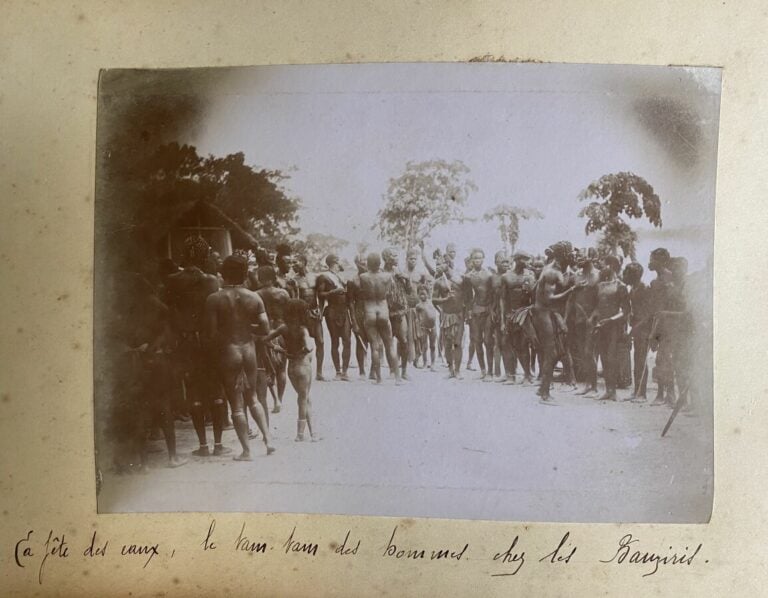 La fête des eaux, le tam-tam des hommes. chez les Banziris.